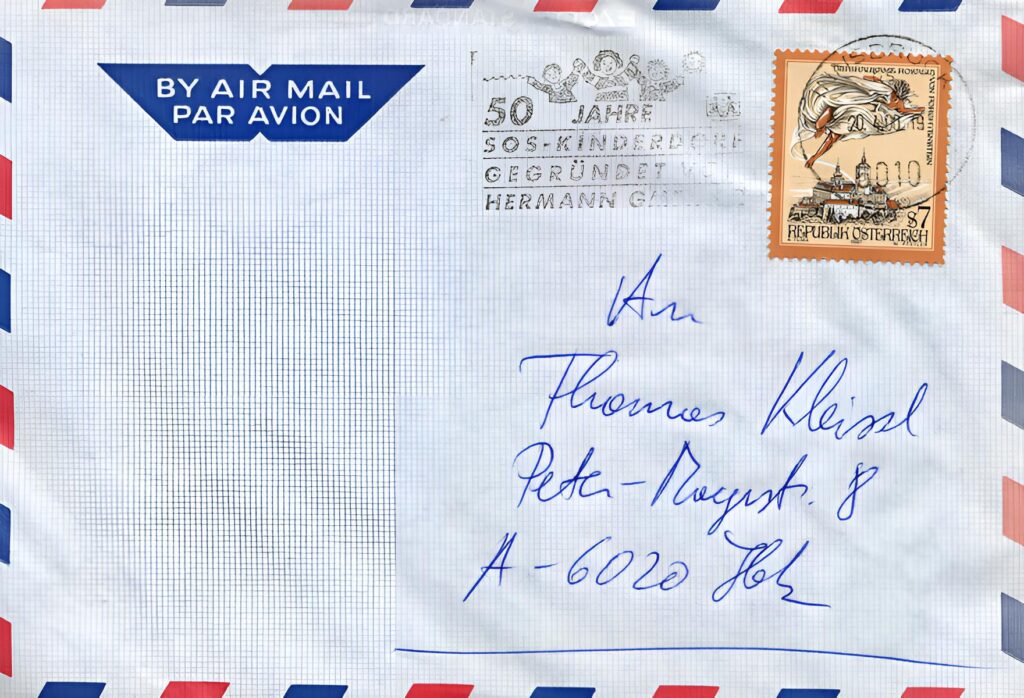 BY AIR MAIL
PAR AVION
50 JAHRE
SOS-KINDERDORF
GEGRÜNDET
HERMANN
20.
6010
$7
REPUBLIK ÖSTERREICH
An
Thomas Kleissl
Peter-Mayrstr. 8
A-6020 Ibk